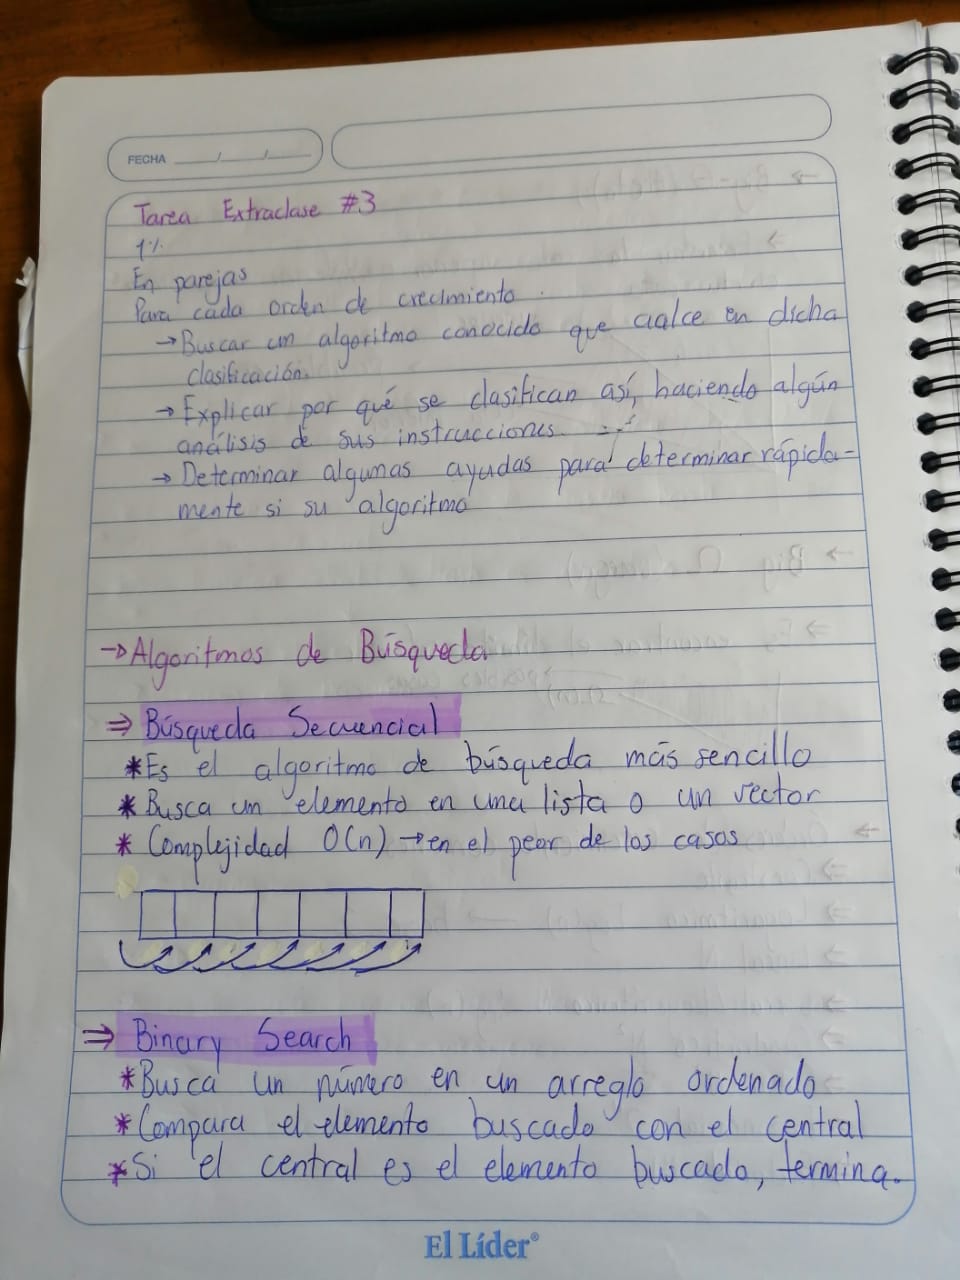 FECHA ___/___/___
Tarea Extraclase #3
1%
En parejas
Para cada orden de crecimiento
→ Buscar un algoritmo conocido que calce en dicha
clasificación.
→ Explicar por qué se clasifican así, haciendo algún
análisis de sus instrucciones
→ Determinar algunas ayudas para determinar rápida-
mente si su algoritmo
→ Algoritmos de Búsqueda
⇒ Búsqueda Secuencial
* Es el algoritmo de búsqueda más sencillo
* Busca un elemento en una lista o un vector
* Complejidad O(n) → en el peor de los casos
⇒ Binary Search
* Busca un número en un arreglo ordenado
* Compara el elemento buscado con el central
* Si el central es el elemento buscado, termina.
El Líder®